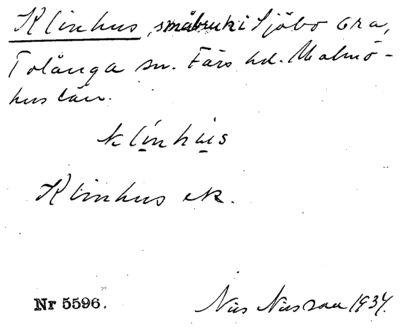 Klinhus, småbruk i Sjöbo ora,
Tolånga sn. Färs hd. Malmö-
hus län.
klinhus
Klinhus ek.
Nr 5596.
Nils Nilsson 1934.